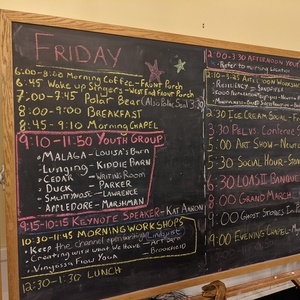 FRIDAY
6:00-8:00 Morning Coffee - Front Porch
6:45 Wake up Singers - West End Front Porch
7:00-7:45 Polar Bear (Also Polar Seal 3:30)
8:00-9:00 BREAKFAST
8:45-9:10 Morning CHAPEL
9:10-11:50 YOUTH GROUP
• MALAGA - LOUISA'S BARN
• Lunging - KIDDIE BARN
• CEDAR - WRITING ROOM
• DUCK - PARKER
• SMUTTYNOSE - LAWRENCE
• APPLEDORE - MARSHMAN
9:15-10:15 KEYNOTE SPEAKER - KAT AARON
10:30-11:45 MORNING WORKSHOPS
• Keep the channel open
• Creating with What We Have - Art Barn
• Vinyassa Flow Yoga - Brookfield
12:30-1:30 LUNCH
2:00-3:30 AFTERNOON YOUTH
• Refer to morning Location
RESILIENCY - SANDPIPER
2:30 ICE CREAM SOCIAL
3:30 PELVS Conference
5:00 ART SHOW - Newto
5:30 SOCIAL HOUR - Stone
6:30 LOAS II BANQUET
8:00 GRAND MARCH
9:00 GHOST STORIES
9:00 EVENING CHAPEL